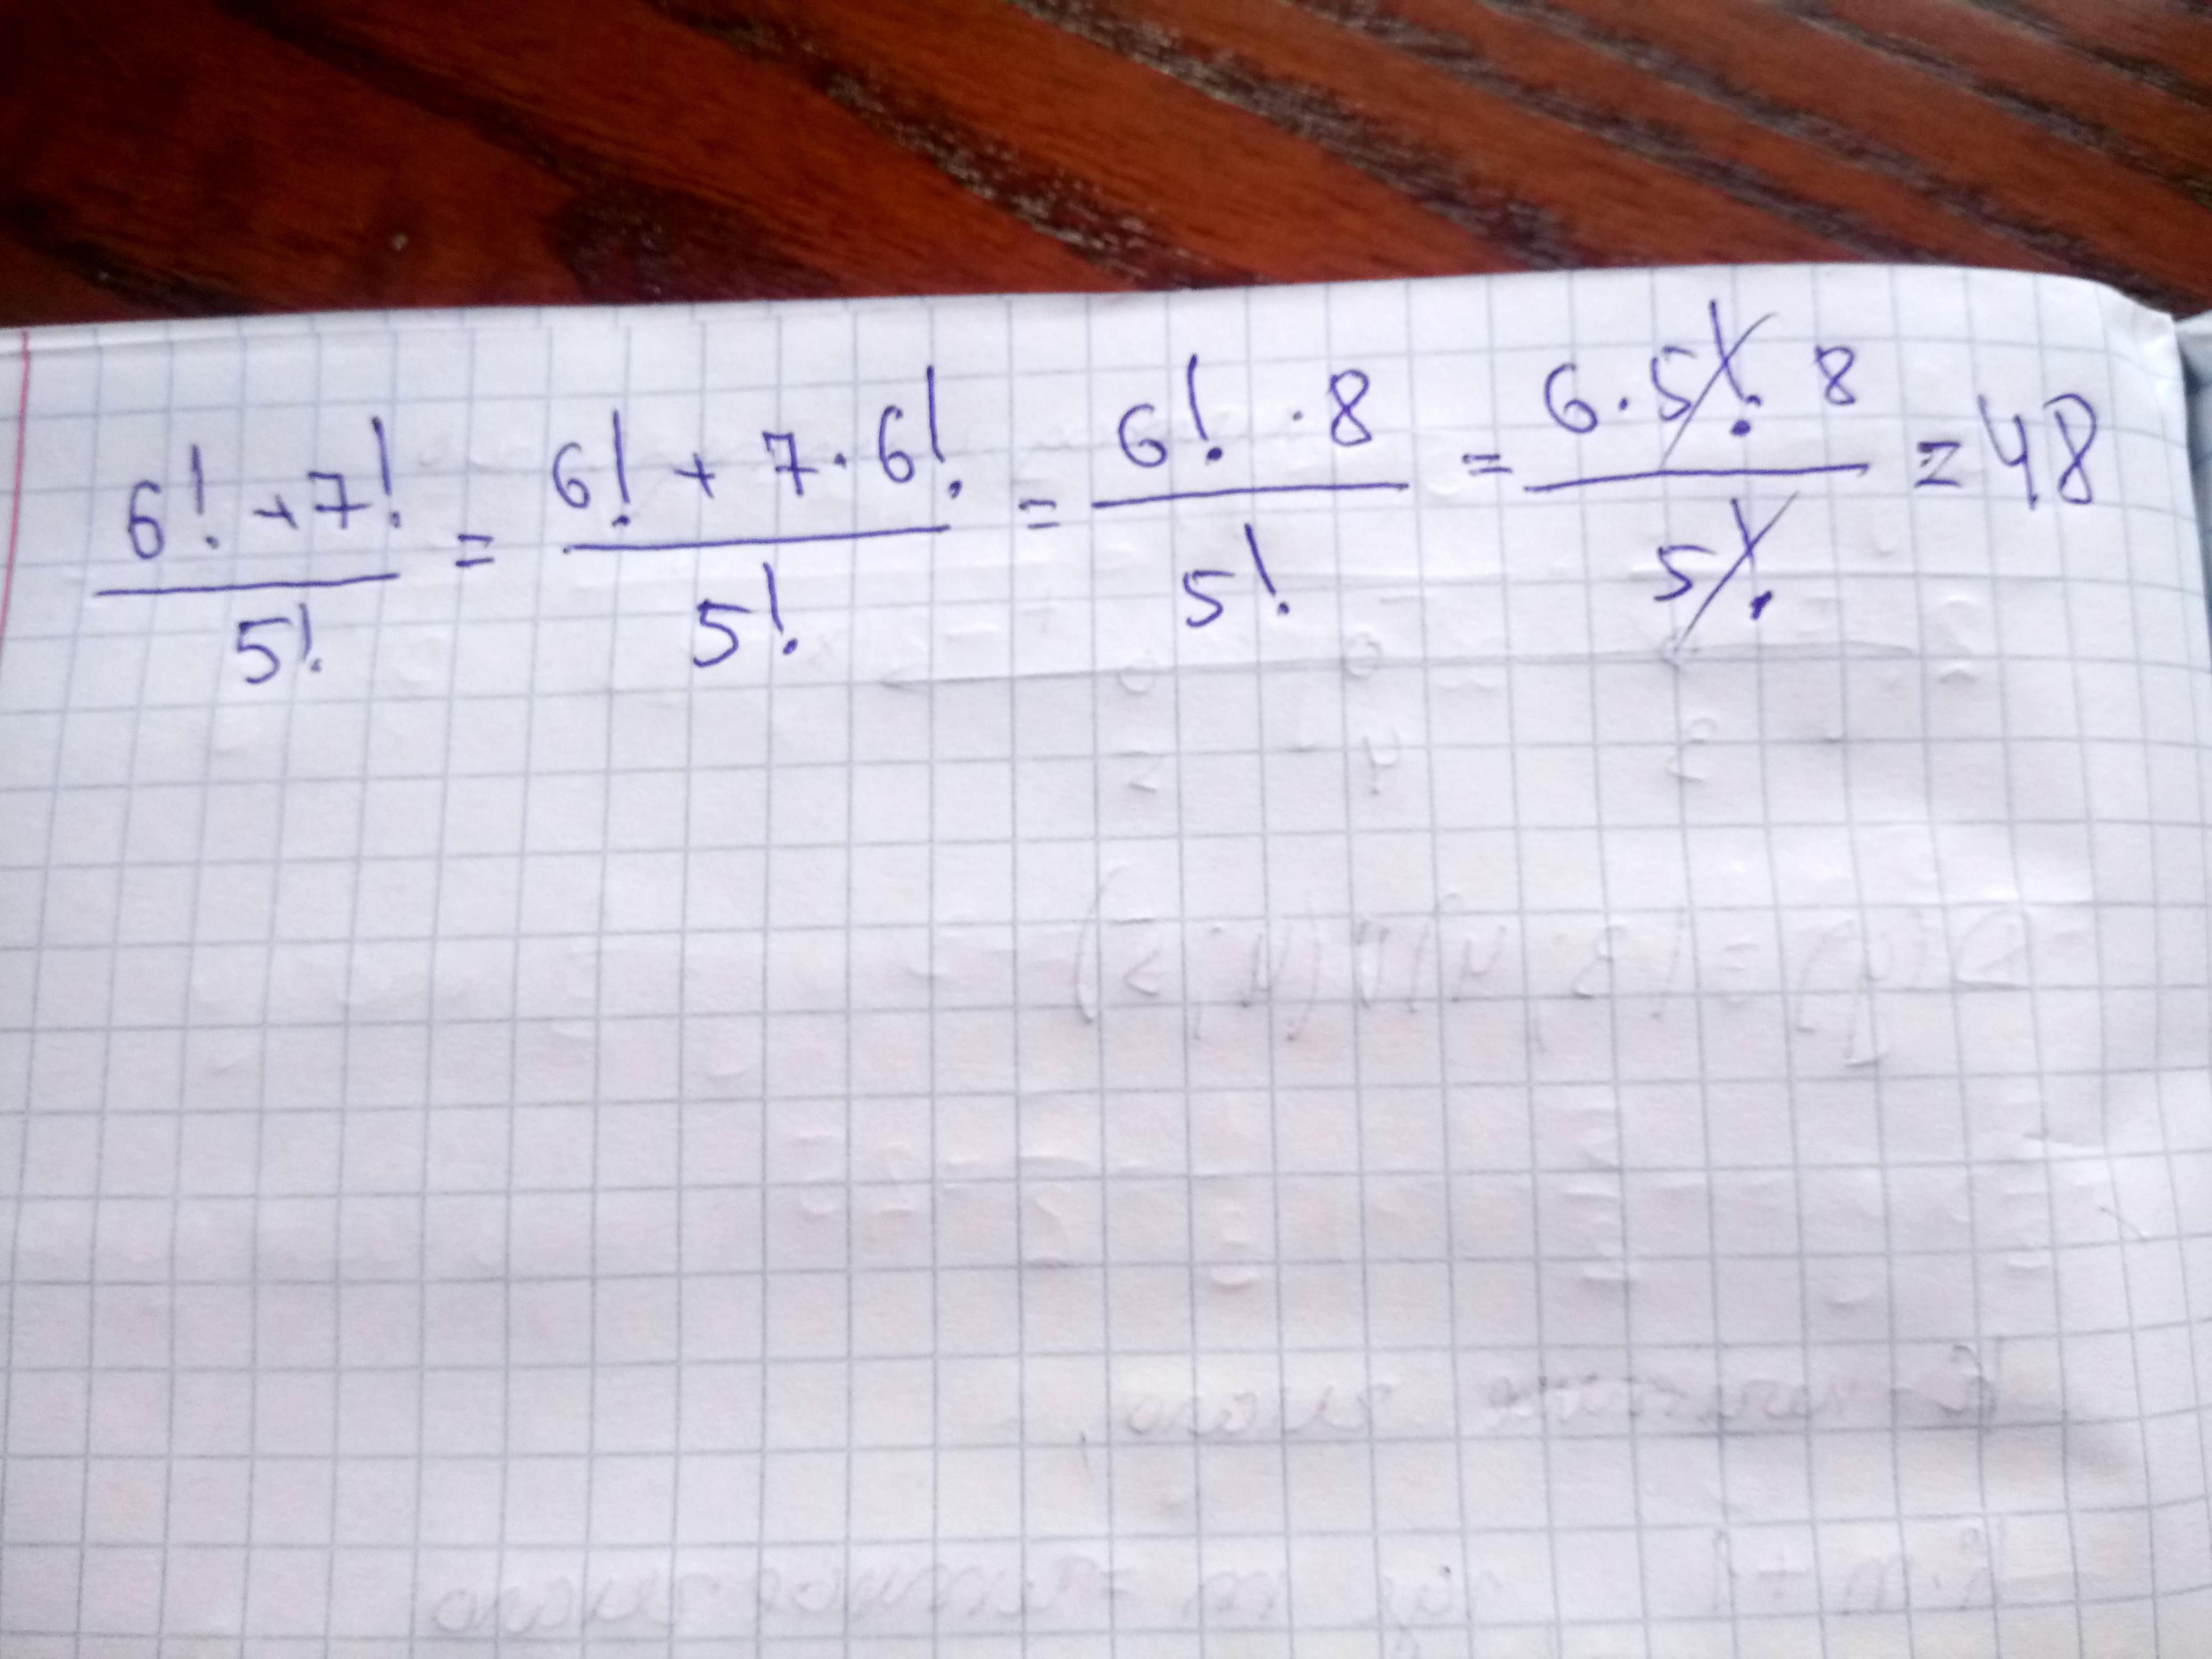 (6! + 7!)/5! = (6! + 7·6!)/5! = (6! · 8)/5! = (6·5!·8)/5! = 48